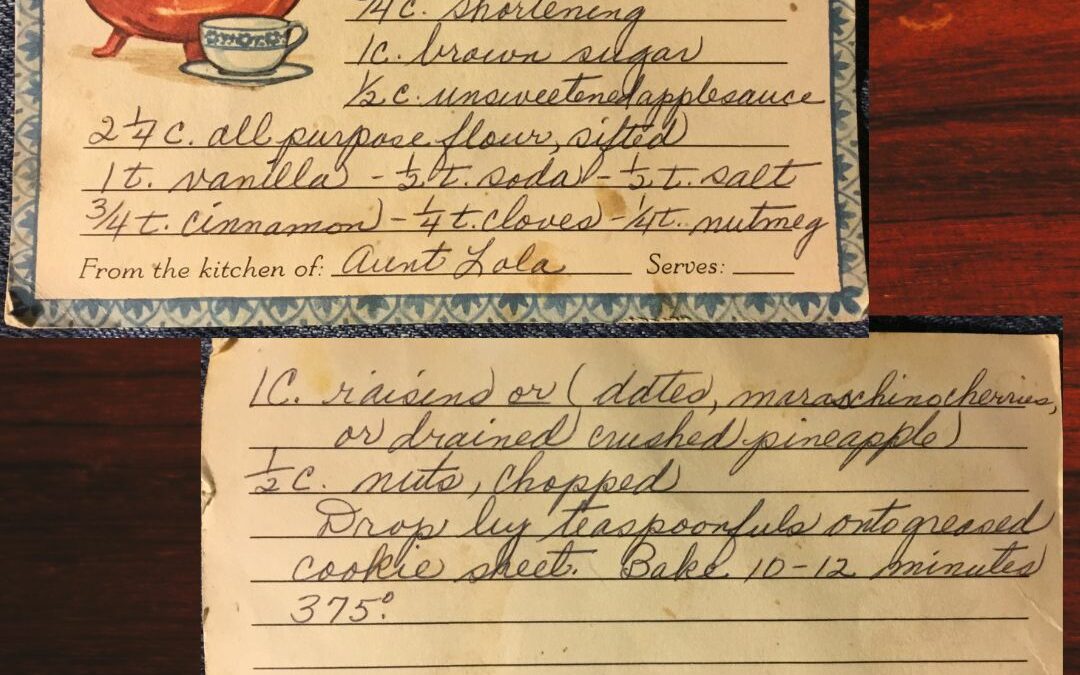 c. shortening
1c. brown sugar
1/2 c. unsweetened applesauce
2 1/4 c. all purpose flour, sifted
1 t. vanilla - 1/2 t. soda - 1/2 t. salt
3/4 t. cinnamon - 1/4 t. cloves - 1/4 t. nutmeg
From the kitchen of: Aunt Lola Serves:
1C. raisins or (dates, maraschino cherries,
or drained crushed pineapple)
1/2 c. nuts, chopped
Drop by teaspoonfuls onto greased
cookie sheet. Bake 10-12 minutes
375°.